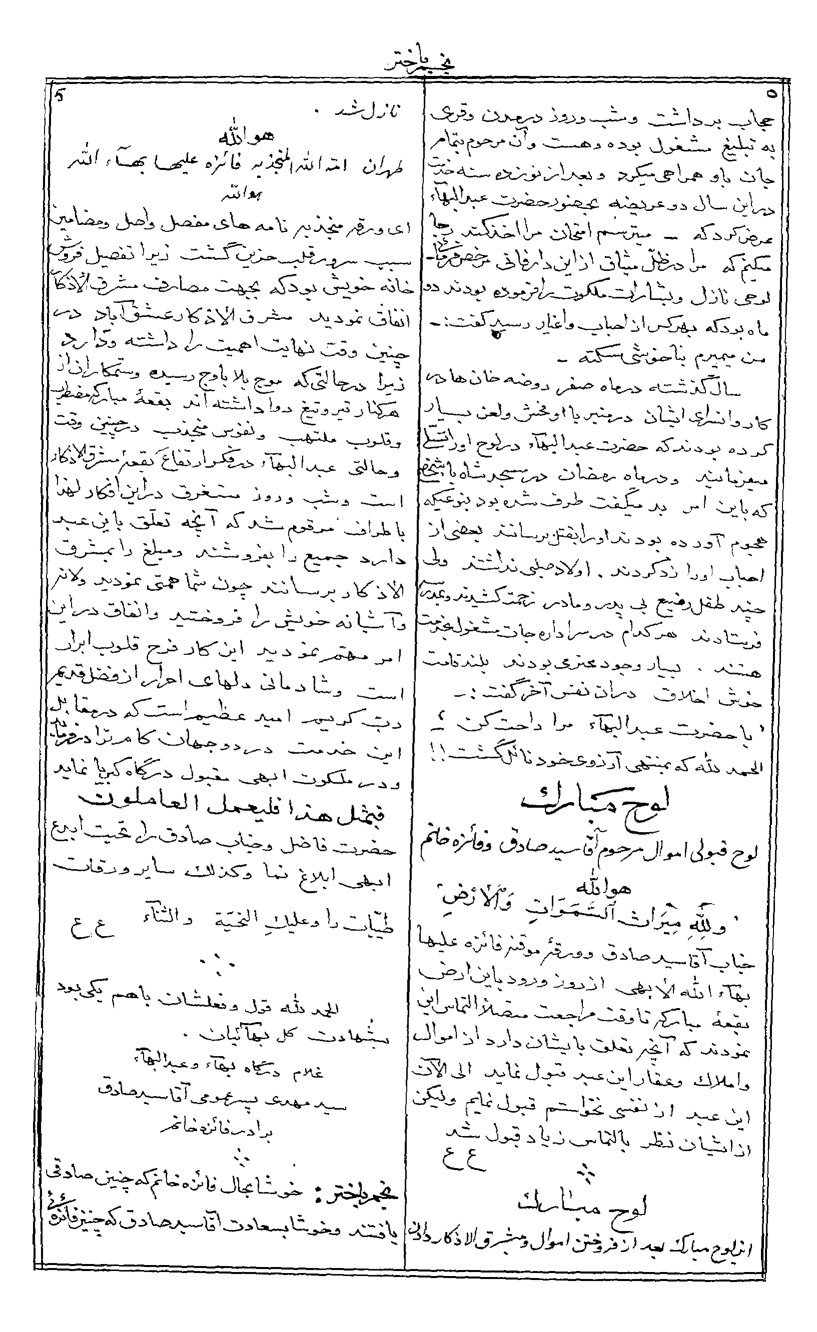 نجم باختر
۵
حجاب برداشت و شب و روز در مدن و قری
به تبلیغ مشغول بوده و هست و آن مرحوم بتمام
جان با او همراهی میکرد و بعد از نوزده سنه خدمت
در این سال دو عریضه بحضور حضرت عبدالبهآء
عرض کرد که - میترسم امتحان مرا اخذ کند رجا
میکنم که مرا در ظل میثاق از این دار فانی مرخص فرمائید
لوحی نازل و بشارات ملکوت را فرموده بودند دو
ماه بود که بهر کس از احباب و اغیار رسید گفت :-
من میمیرم بناخوشی سکته -
سال گذشته در ماه صفر روضه خان ها در
کاروانسرای ایشان در منبر با او فحش و لعن بسیار
کرده بودند که حضرت عبدالبهآء در لوح او را تسلی
میفرمایند و در ماه رمضان در مسجد شاه با شخصی
که باین امر بد میگفت طرف شده بود بنوعیکه
هجوم آورده بودند او را بقتل برسانند بعضی از
احباب او را رد کردند . اولاد صلبی نداشتند ولی
چند طفل رضیع بی پدر و مادر زحمت کشیدند و بمدرسه
فرستادند هر کدام در سر اداره جات مشغول خدمت
هستند . بسیار وجود عزیزی بودند بلند قامت
خوش اخلاق در آن نفس آخر گفت :-
' یا حضرت عبدالبهآء مرا راحت کن '
الحمد لله که بمنتهی آرزوی خود نائل گشت !!
لوح مبارک
لوح قبولی اموال مرحوم آقا سید صادق و فائزه خانم
هوالله
' ولله میراث السموات والأرض '
جناب آقا سید صادق و ورقهٔ موقنه فائزه علیها
بهآء الله الأبهی از روز ورود باین ارض
بقعهٔ مبارکه تا وقت مراجعت متصلاً التماس این
نمودند که آنچه تعلق بایشان دارد از اموال
و املاک و عقار این عبد قبول نماید الی الآن
این عبد از نفسی نخواستم قبول نمایم ولیکن
از ایشان نظر بالتماس زیاد قبول شد
ع ع
لوح مبارک
این لوح مبارک بعد از فروختن اموال و مشرق الاذکار دادن
5
نازل شد .
هوالله
طهران امة الله المنجذبه فائزه علیها بهآء الله
هوالله
ای ورقهٔ منجذبه نامه های مفصل واصل و مضامین
سبب سرور قلب حزین گشت زیرا تفصیل فروش
خانه خویش بود که بجهت مصارف مشرق الاذکار
انفاق نمودید مشرق الاذکار عشق آباد در
چنین وقت نهایت اهمیت را داشته و دارد
زیرا در حالتی که موج بلا باوج رسیده و ستمکاران از
هر کنار تیر و تیغ روا داشته اند بقعهٔ مبارکه مضطرب
و قلوب ملتهب و نفوس منجذب در چنین وقت
و حالتی عبدالبهآء در فکر ارتفاع بقعهٔ مشرق الاذکار
است و شب و روز مستغرق در این افکار لهذا
باطراف مرقوم شد که آنچه تعلق باین عبد
دارد جمیع را بفروشند و مبلغ را بمشرق
الاذکار برسانند چون شما همتی نمودید و لانه
و آشیانه خویش را فروختید و انفاق در این
امر مهم نمودید این کار فرح قلوب ابرار
است و شادمانی دلهای احرار از فضل قدیم
رب کریم امید عظیم است که در مقابل
این خدمت در دو جهان کامرانی فرماید
و در ملکوت ابهی مقبول درگاه کبریا نماید
فبمثل هذا فلیعمل العاملون
حضرت فاضل و جناب صادق را تحیت ابدع
ابهی ابلاغ نما و کذلک سایر ورقات
طیبات را و علیک التحیة والثنآء ع ع
الحمد لله قول و فعلشان با هم یکی بود
بشهادت کل بهائیان .
غلام درگاه بهآء و عبدالبهآء
سید مهدی پسر عمومی آقا سید صادق
برادر فائزه خانم
نجم باختر : خوشا بحال فائزه خانم که چنین صادقی
یافتند و خوشا بسعادت آقا سید صادق که چنین فائزهٔ